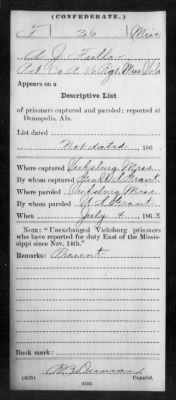 (CONFEDERATE.)
F 36 Miss
A. J. Fuller
Pvt. Co A 36 Regt Miss Vols
Appears on a
Descriptive List
of prisoners captured and paroled; reported at
Demopolis, Ala.
List dated
Not dated , 186 .
Where captured Vicksburg Miss.
By whom captured Genl U.S. Grant
Where paroled Vicksburg Miss.
By whom paroled U.S. Grant
When July 4 , 1863.
NOTE: "Unexchanged Vicksburg prisoners
who have reported for duty East of the Missis-
sippi since Nov. 14th."
Remarks: Present
Book mark:
Copyist.